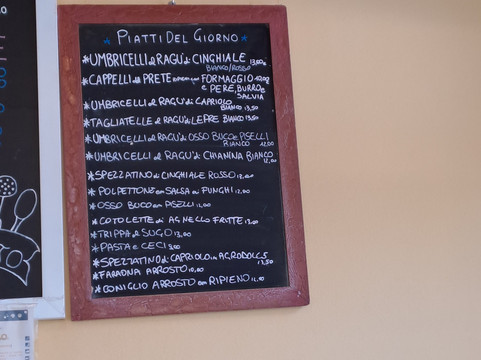 PIATTI DEL GIORNO
*UMBRICELLI al RAGU' di CINGHIALE 13,00
BIANCO/ROSSO
*CAPPELLI del PRETE FORMAGGIO
e PERE, BURRO e
SALVIA
*UMBRICELLI al RAGU' di CAPRIOLO
BIANCO 13,50
*TAGLIATELLE al RAGU' di LEPRE BIANCO 13,50
*UMBRICELLI al RAGU' di OSSO BUCO e PISELLI
BIANCO 12,00
*UMBRICELLI al RAGU' di CHIANINA BIANCO
*SPEZZATINO di CINGHIALE ROSSO 12,00
*POLPETTONE con SALSA ai FUNGHI 12,00
*OSSO BUCO con PISELLI 12,00
*COTOLETTE di AGNELLO FRITTE 13,00
*TRIPPA al SUGO 13,00
*PASTA e CECI 9,00
*SPEZZATINO di CAPRIOLO in AGRODOLCE
13,50
*FARAONA ARROSTO 10,00
*CONIGLIO ARROSTO con RIPIENO 12,00